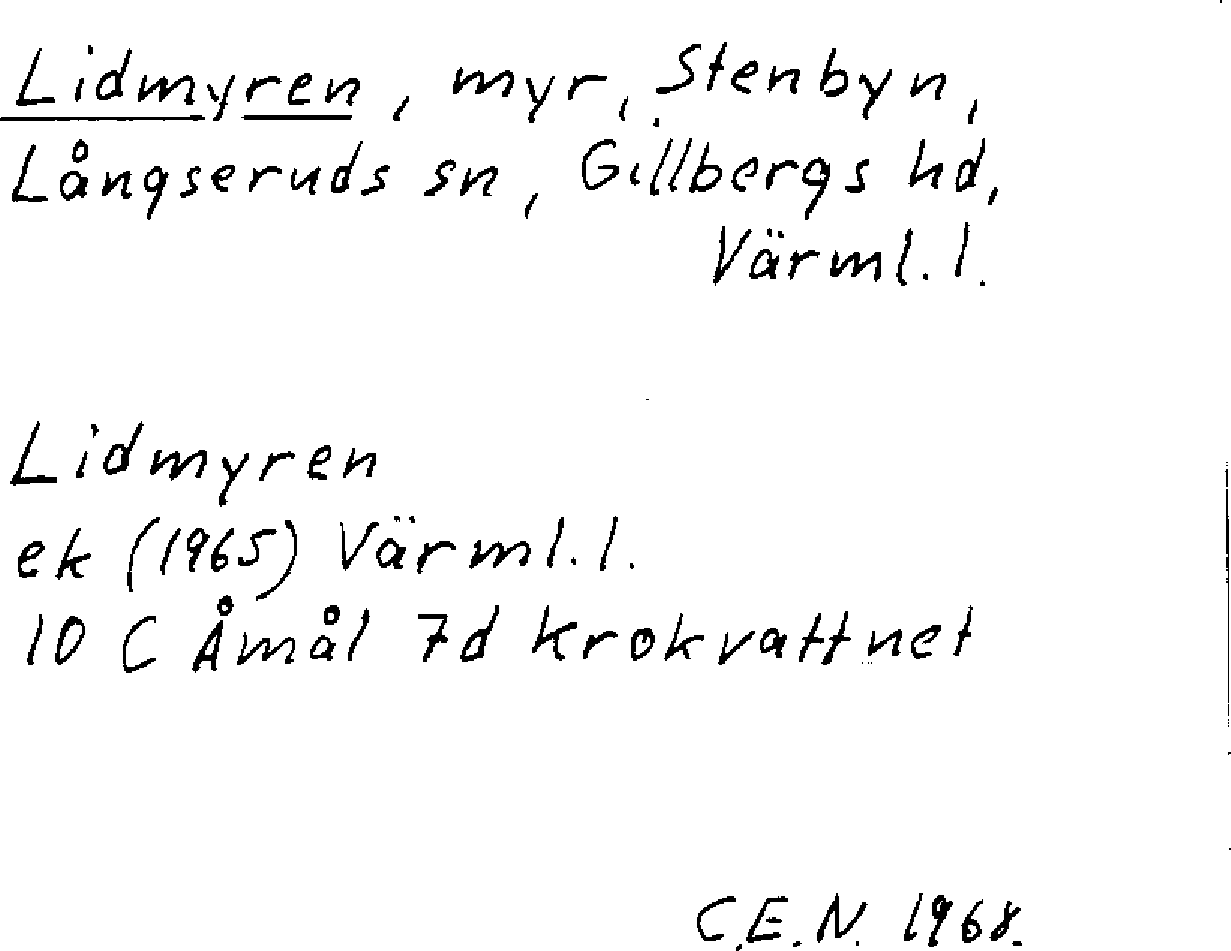 Lidmyren, myr, Stenbyn,
Långseruds sn, Gillbergs hd,
Värml. l.
Lidmyren
ek (1965) Värml. l.
10 C Åmål 7d Krokvattnet
C.E.N. 1968.